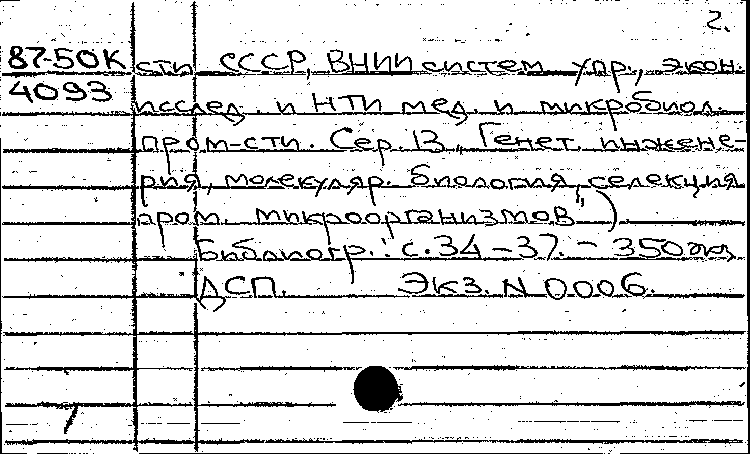 2.
87-50К сти СССР, ВНИИ систем упр., экон.
4093 исслед. и НТИ мед. и микробиол.
пром-сти. Сер. 13, "Генет. инжене-
рия, молекуляр. биология, селекция
пром. микроорганизмов").
Библиогр.: с. 34-37. - 350 экз.
ДСП. Экз. N 0006.